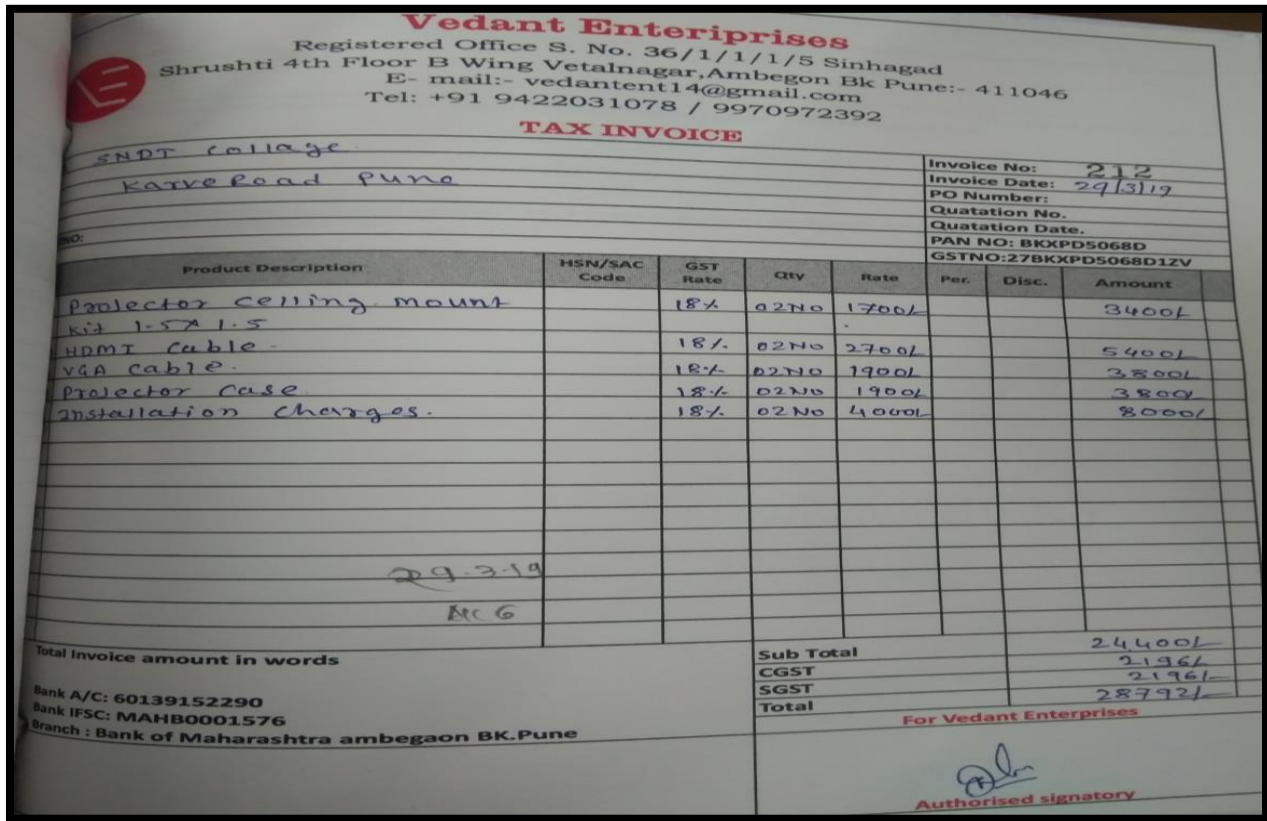 Vedant Enteriprises
Registered Office S. No. 36/1/1/1/5 Sinhagad
Shrushti 4th Floor B Wing Vetalnagar,Ambegon Bk Pune:- 411046
E- mail:- vedantent14@gmail.com
Tel: +91 9422031078 / 9970972392
TAX INVOICE
SNDT Collage.
Karve Road Pune
Invoice No: 212
Invoice Date: 29/3/19
PO Number:
Quatation No.
Quatation Date.
PAN NO: BKXPD5068D
GSTNO:27BKXPD5068D1ZV
Product Description HSN/SAC Code GST Rate Qty Rate Per. Disc. Amount
Projector celling mount 18% 02NO 1700/- 3400/-
Kit 1.5 X 1.5
HDMI Cable - 18% 02NO 2700/- 5400/-
VGA Cable. 18% 02NO 1900/- 3800/-
Projector Case 18% 02NO 1900/- 3800/-
Installation Charges. 18% 02NO 4000/- 8000/-
29.3.19
Total Invoice amount in words
Sub Total 24400/-
CGST 2196/-
SGST 2196/-
Total 28792/-
Bank A/C: 60139152290
Bank IFSC: MAHB0001576
Branch : Bank of Maharashtra ambegaon BK.Pune
For Vedant Enterprises
Authorised signatory